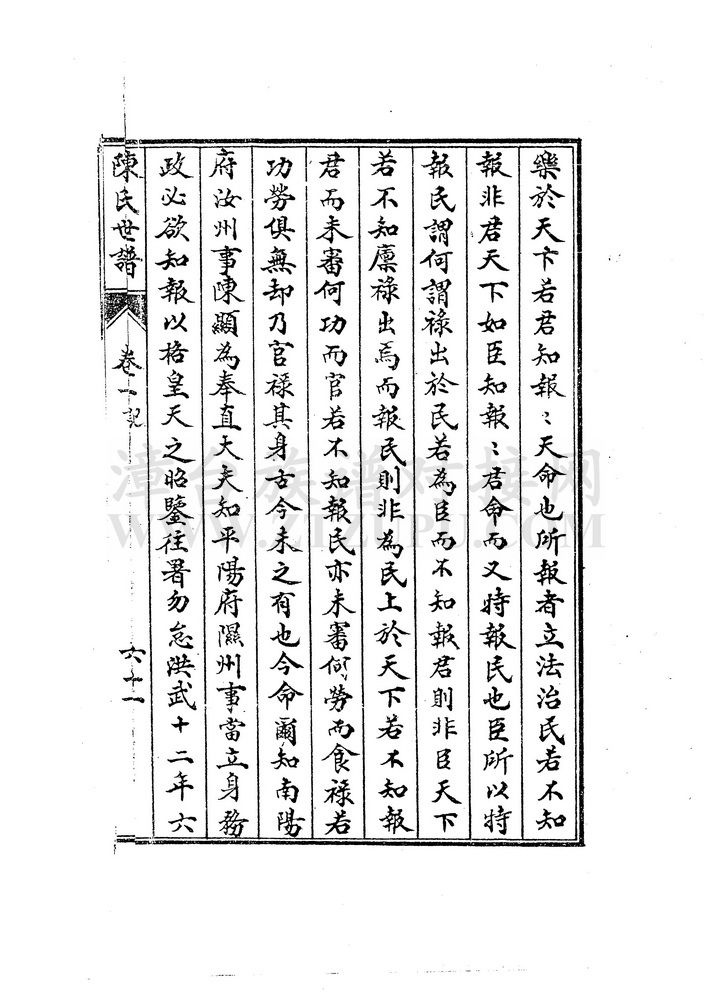 樂於天下若君知報〻天命也所報者立法治民若不知
報非君天下如臣知報〻君命而又特報民也臣所以特
報民謂何謂祿出於民若為臣而不知報君則非臣天下
若不知廩祿出焉而報民則非為民上於天下若不知報
君而未審何功而官若不知報民亦未審何勞而食祿若
功勞俱無却乃官祿其身古今未之有也今命爾知南陽
府汝州事陳顯為奉直大夫知平陽府隰州事當立身務
政必欲知報以格皇天之昭鑒往署勿怠洪武十二年六
陳氏世譜
卷一 記
六十二
漳台族譜对接网
WWW.ZTZUPU.COM